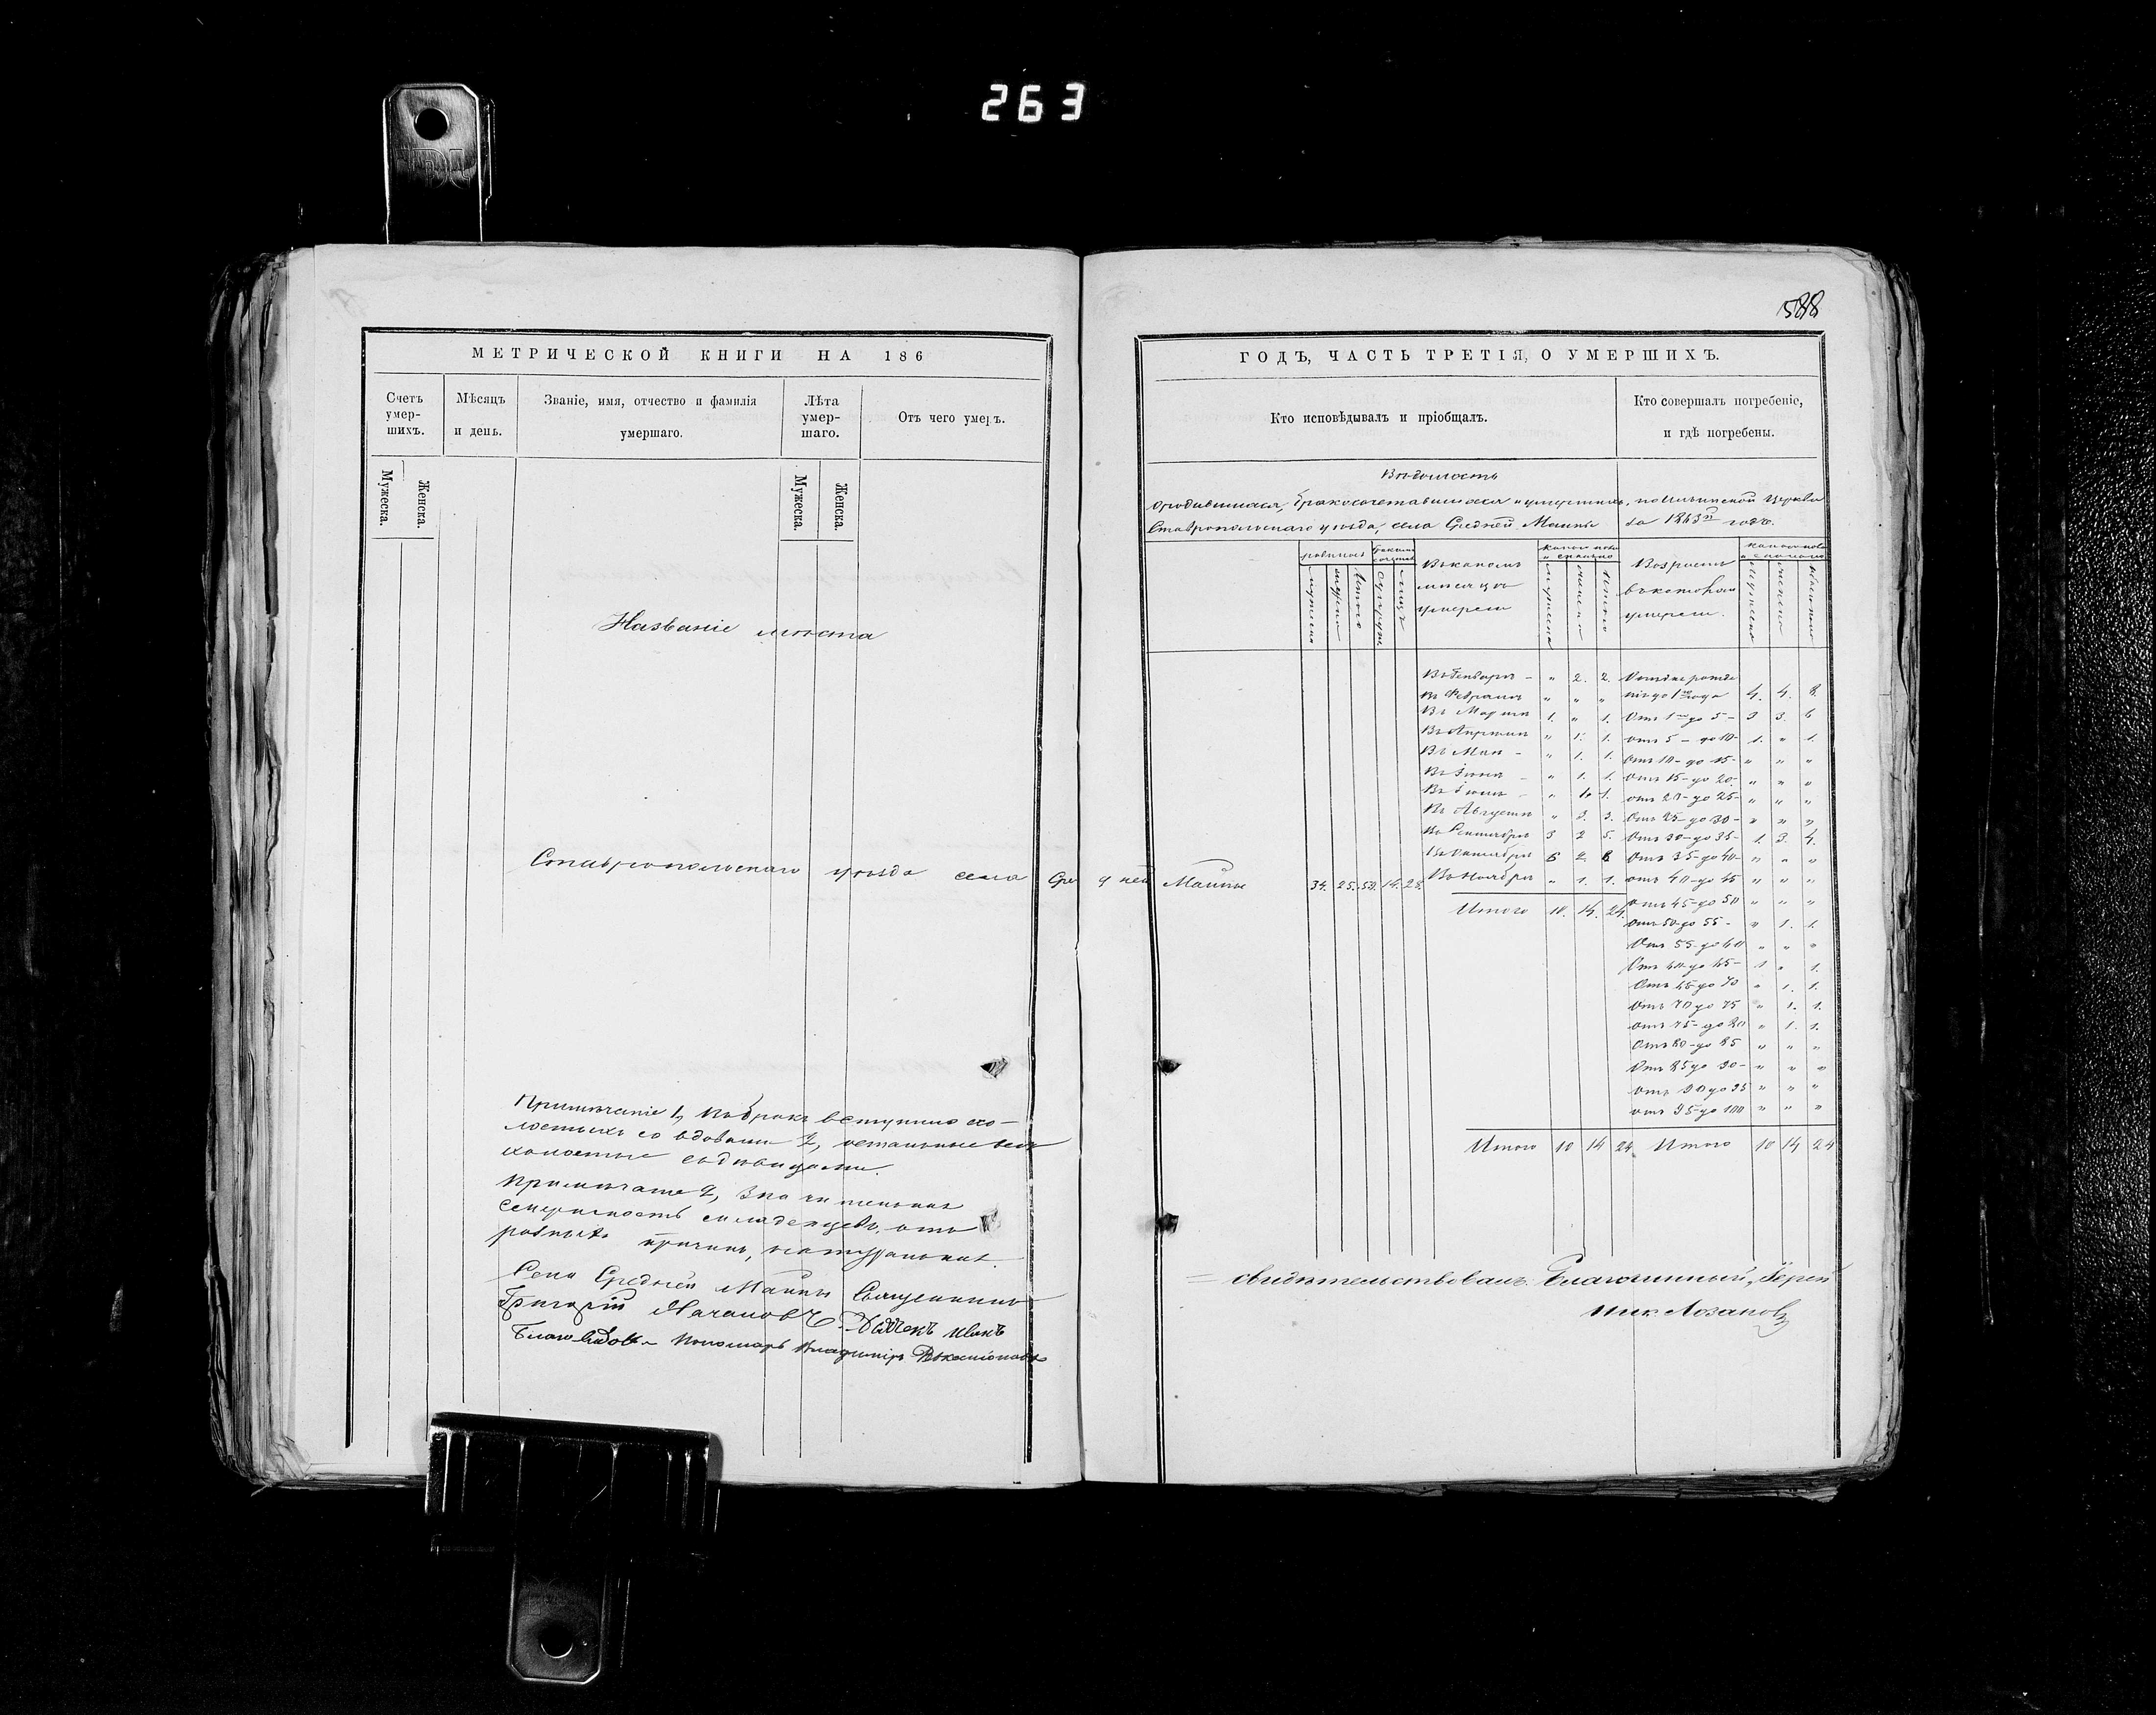 263
588
МЕТРИЧЕСКОЙ КНИГИ НА 186
Счетъ умер-шихъ.
Мѣсяцъ и день.
Званіе, имя, отчество и фамилія умершаго.
Лѣта умер-шаго.
Отъ чего умеръ.
Мужеска.
Женска.
Мужеска.
Женска.
Названіе мѣста
Ставропольскаго уѣзда села Сре
Примѣчаніе 1, Въ бракъ вступило хо-
лостыхъ со вдовами 2, остальные все
холостые съ дѣвицами.
Примѣчаніе 2, Значительная
смертность младенцевъ, отъ
разныхъ причинъ, натуральная.
Села Средней Майны Священникъ
Григорій
Дьячекъ Иванъ
Благовидовъ Пономарь Владиміръ
ГОДЪ, ЧАСТЬ ТРЕТІЯ, О УМЕРШИХЪ.
Кто исповѣдывалъ и пріобщалъ.
Кто совершалъ погребеніе, и гдѣ погребены.
Вѣдомость
о родившихся, бракосочетавшихся и умершихъ, по Ильинской Церкви
Ставропольскаго уѣзда, села Средней Майны за годъ.
Въ какомъ мѣсяцѣ умерли
Возрастъ въ которомъ умерли.
дней Майны 34. 25. 14. 28.
Въ Генварѣ - " 2. 2.
Въ Февралѣ " " "
Въ Мартѣ 1. " 1.
Въ Апрѣлѣ " 1. 1.
Въ Маѣ - " 1. 1.
Въ Іюнѣ - " 1. 1.
Въ Іюлѣ - " 1. 1.
Въ Августѣ " 3. 3.
Въ Сентябрѣ 3 2 5.
Въ Октябрѣ 6 2. 8.
Въ Ноябрѣ " 1. 1.
Итого 10. 14. 24.
нія до 1 года 4. 4. 8.
Отъ 1 до 5- 3 3. 6
отъ 5- до 10- 1. " 1.
Отъ 10- до 15- " " "
Отъ 15- до 20- " " "
отъ 20- до 25- " " "
Отъ 25- до 30- " " "
Отъ 30- до 35- 1. 3. 4.
Отъ 35- до 40- " " "
отъ 40- до 45 " " "
отъ 45- до 50 " " "
Отъ 50- до 55- " 1. 1.
Отъ 55- до 60 " " "
Отъ 60- до 65- 1 " 1.
Отъ 65 до 70 " 1. 1.
Отъ 70 до 75 " 1. 1.
Отъ 75- до 80 " 1. 1.
Отъ 80- до 85 " " "
Отъ 85 до 90- " " "
Отъ 90 до 95 " " "
отъ 95 до 100 " " "
Итого 10 14 24. Итого 10 14 24
свидѣтельствовалъ Благочинный, Іерей
Ник. Лозановъ